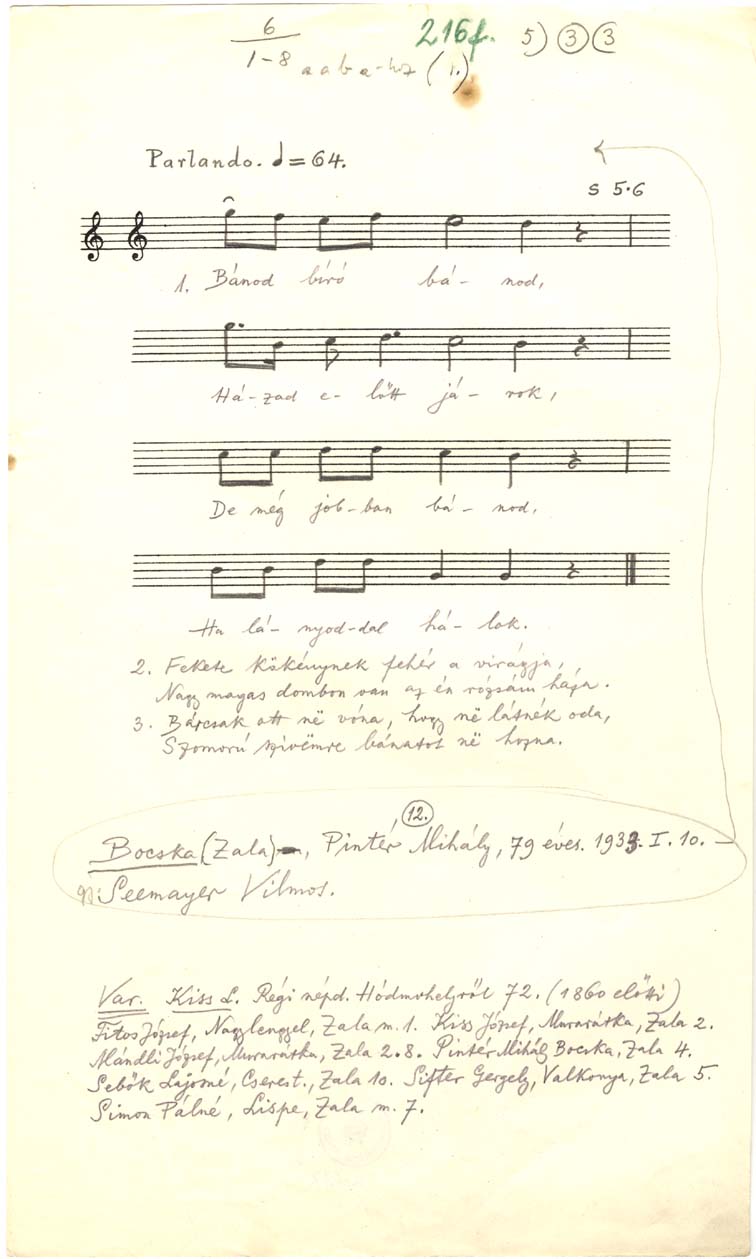 6 216f. 5) 3 3
1-8 a a b a-hoz (1.)
Parlando. ♩=64.
s 5·6
1. Bánod bíró bá- nod,
Há-zad e- lőtt já- rok,
De még job-ban bá- nod,
Ha lá- nyod-dal há- lok.
2. Fekete kökénynek fehér a virágja,
Nagy magas dombon van az én rózsám háza.
3. Bárcsak ott në vóna, hogy në látnék oda,
Szomorú szivëmre bánatot në hozna.
12.
Bocska (Zala), Pintér Mihály, 79 éves. 1933. I. 10.
gy: Seemayer Vilmos.
Var. Kiss L. Régi népd. Hódmvhelyről 72. (1860 előtti)
Fitos József, Nagylengyel, Zala m. 1. Kiss József, Murarátka, Zala 2.
Mándli József, Murarátka, Zala 2.8. Pintér Mihály Bocska, Zala 4.
Sebők Lajosné, Cserest., Zala 10. Sifter Gergely, Valkonya, Zala 5.
Simon Pálné, Lispe, Zala m. 7.